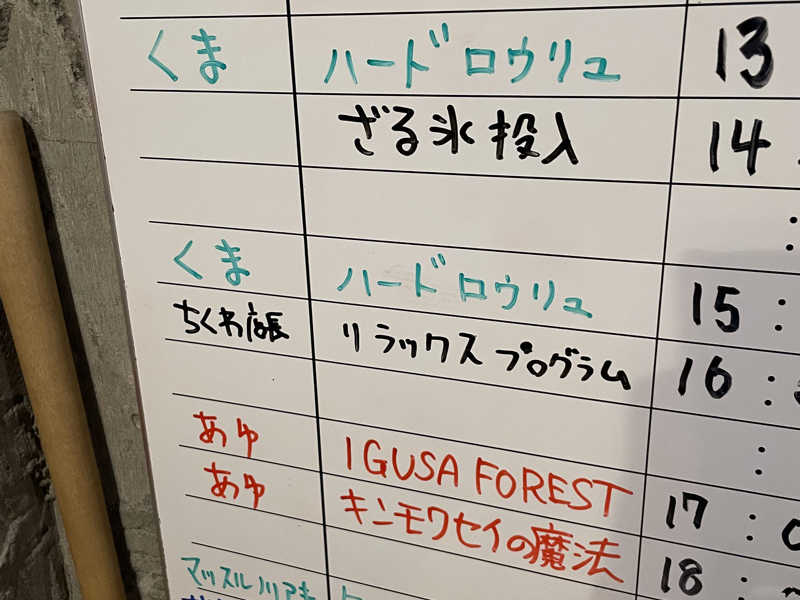 くま ハードロウリュ 13
ざる氷投入 14
:
くま ハードロウリュ 15:
ちくわ店長 リラックスプログラム 16:
:
あゆ IGUSA FOREST 17:0
あゆ キンモクセイの魔法 18:
マッスル